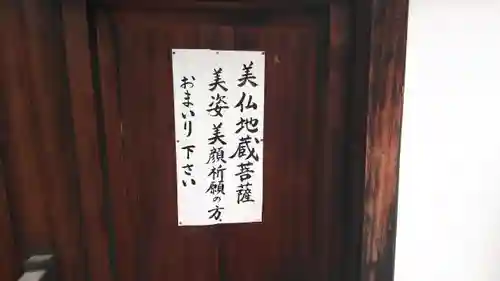 美仏地蔵菩薩
美姿美顔祈願の方、
おまいり下さい